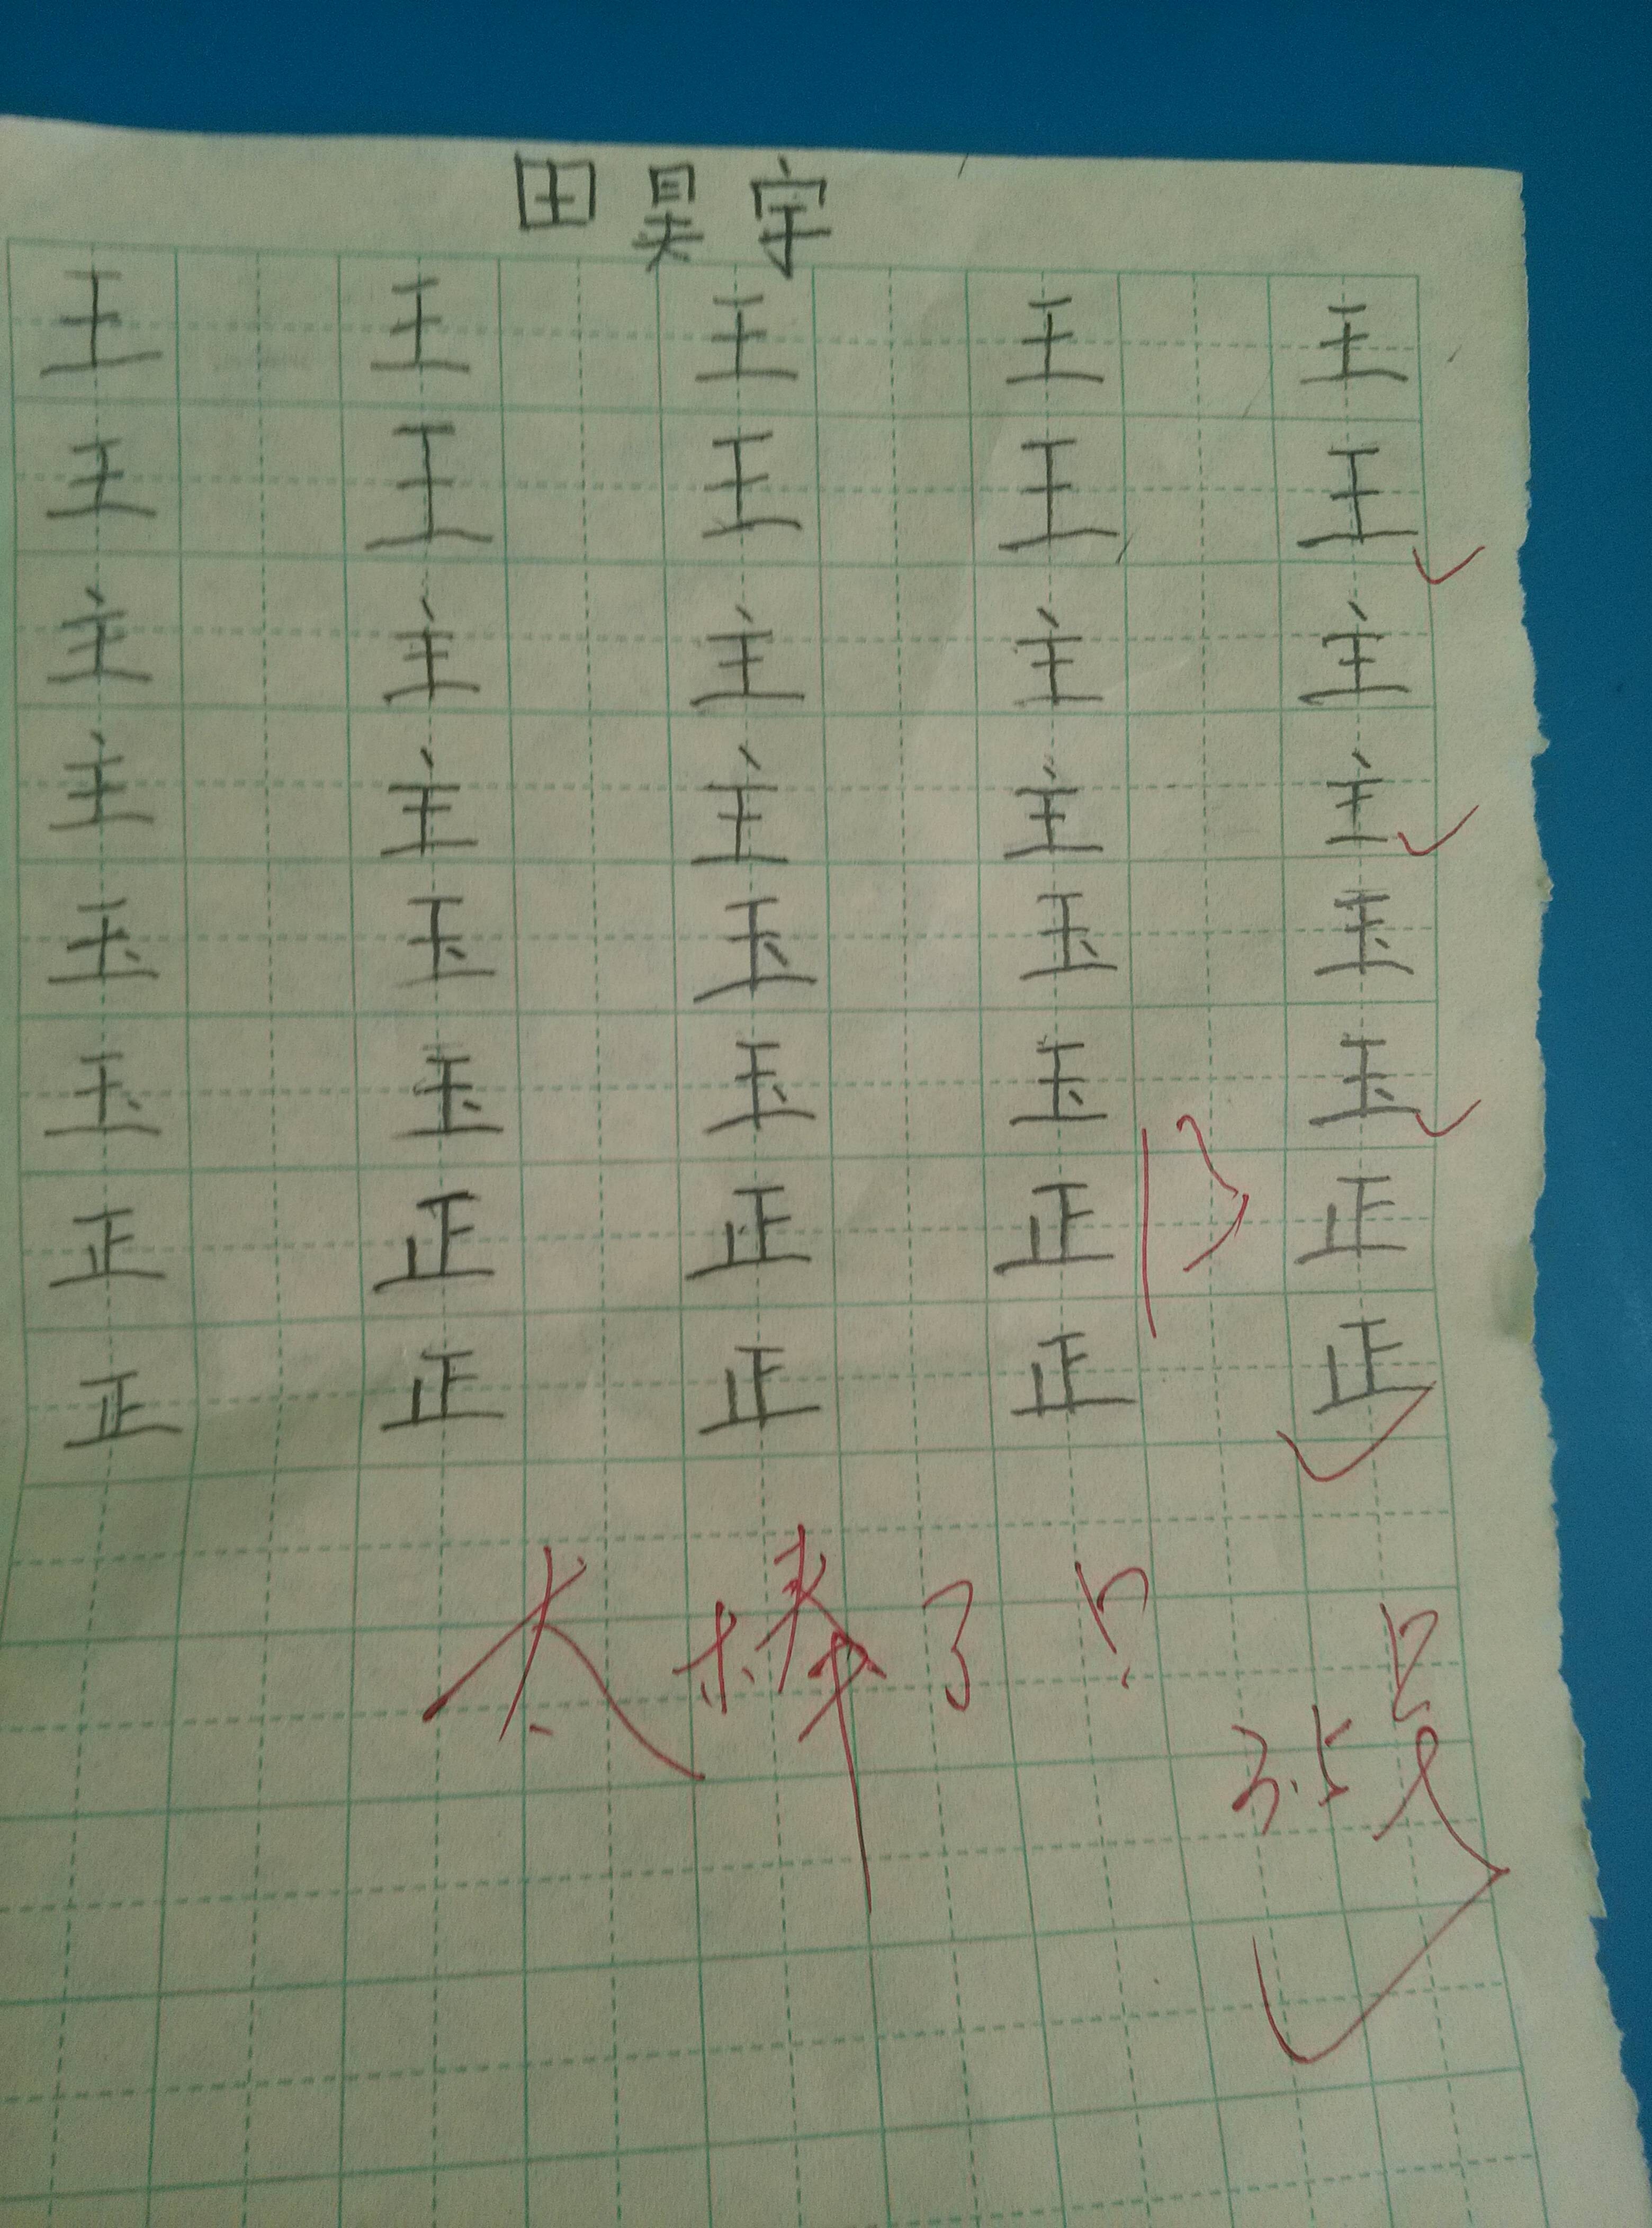 田昊宇
王 王 王 王 王
王 王 王 王 王
主 主 主 主 主
主 主 主 主 主
玉 玉 玉 玉 玉
玉 玉 玉 玉 玉
正 正 正 正 正
正 正 正 正 正
太棒了